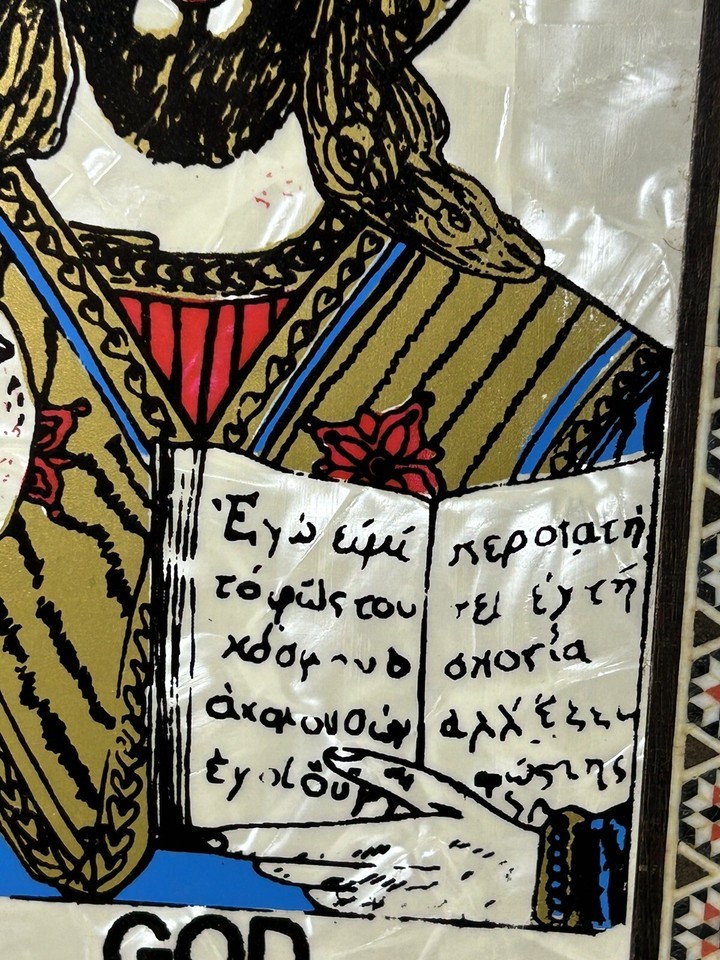 Ἐγώ εἰμί
τό φῶς του
κόσμου ὁ
ἀκολουθῶν
ἐμοί οὐ
περπατή
σει ἐν τῆ
σκοτία
ἀλλ' ἕξει
φῶς της
GOD